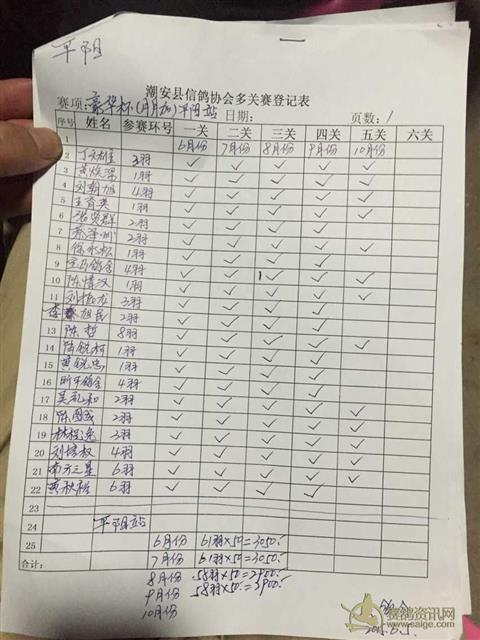 平阳
潮安县信鸽协会多关赛登记表
赛项:豪华杯(月月加)平阳站 日期: 页数:1
序号 姓名 参赛环号 一关 二关 三关 四关 五关 六关
1 6月份 7月份 8月份 9月份 10月份
2 3羽 ✓ ✓ ✓ ✓ ✓
3 黄焕深 1羽 ✓ ✓ ✓ ✓
4 刘朝旭 4羽 ✓ ✓ ✓ ✓ ✓
5 王育英 1羽 ✓ ✓ ✓ ✓ ✓
6 2羽 ✓ ✓ ✓ ✓
7 2羽 ✓ ✓ ✓ ✓
8 1羽 ✓ ✓ ✓ ✓ ✓
9 4羽 ✓ ✓ ✓ ✓
10 陈惜汉 1羽 ✓ ✓ ✓ ✓ ✓
11 3羽 ✓ ✓ ✓ ✓ ✓
李旭民 2羽 ✓ ✓ ✓ ✓
13 陈哲 8羽 ✓ ✓ ✓ ✓
14 陈锐柯 1羽 ✓ ✓ ✓ ✓ ✓
15 黄锐忠 1羽 ✓ ✓ ✓ ✓
16 4羽 ✓ ✓ ✓ ✓
17 吴礼和 2羽 ✓ ✓ ✓ ✓
18 陈图武 2羽 ✓ ✓ ✓ ✓ ✓
19 3羽 ✓ ✓ ✓ ✓ ✓
20 刘培权 4羽 ✓ ✓ ✓ ✓ ✓
21 南方三星 6羽 ✓ ✓ ✓ ✓ ✓
22 黄秋裕 6羽 ✓ ✓ ✓ ✓
23
24 平阳站
25 6月份 61羽×50=3050.
合计: 7月份 61羽×50=3050.
8月份 58羽×50=2900.
9月份 58羽×50=2900.
10月份
赛鸽资讯网
www.saige.com